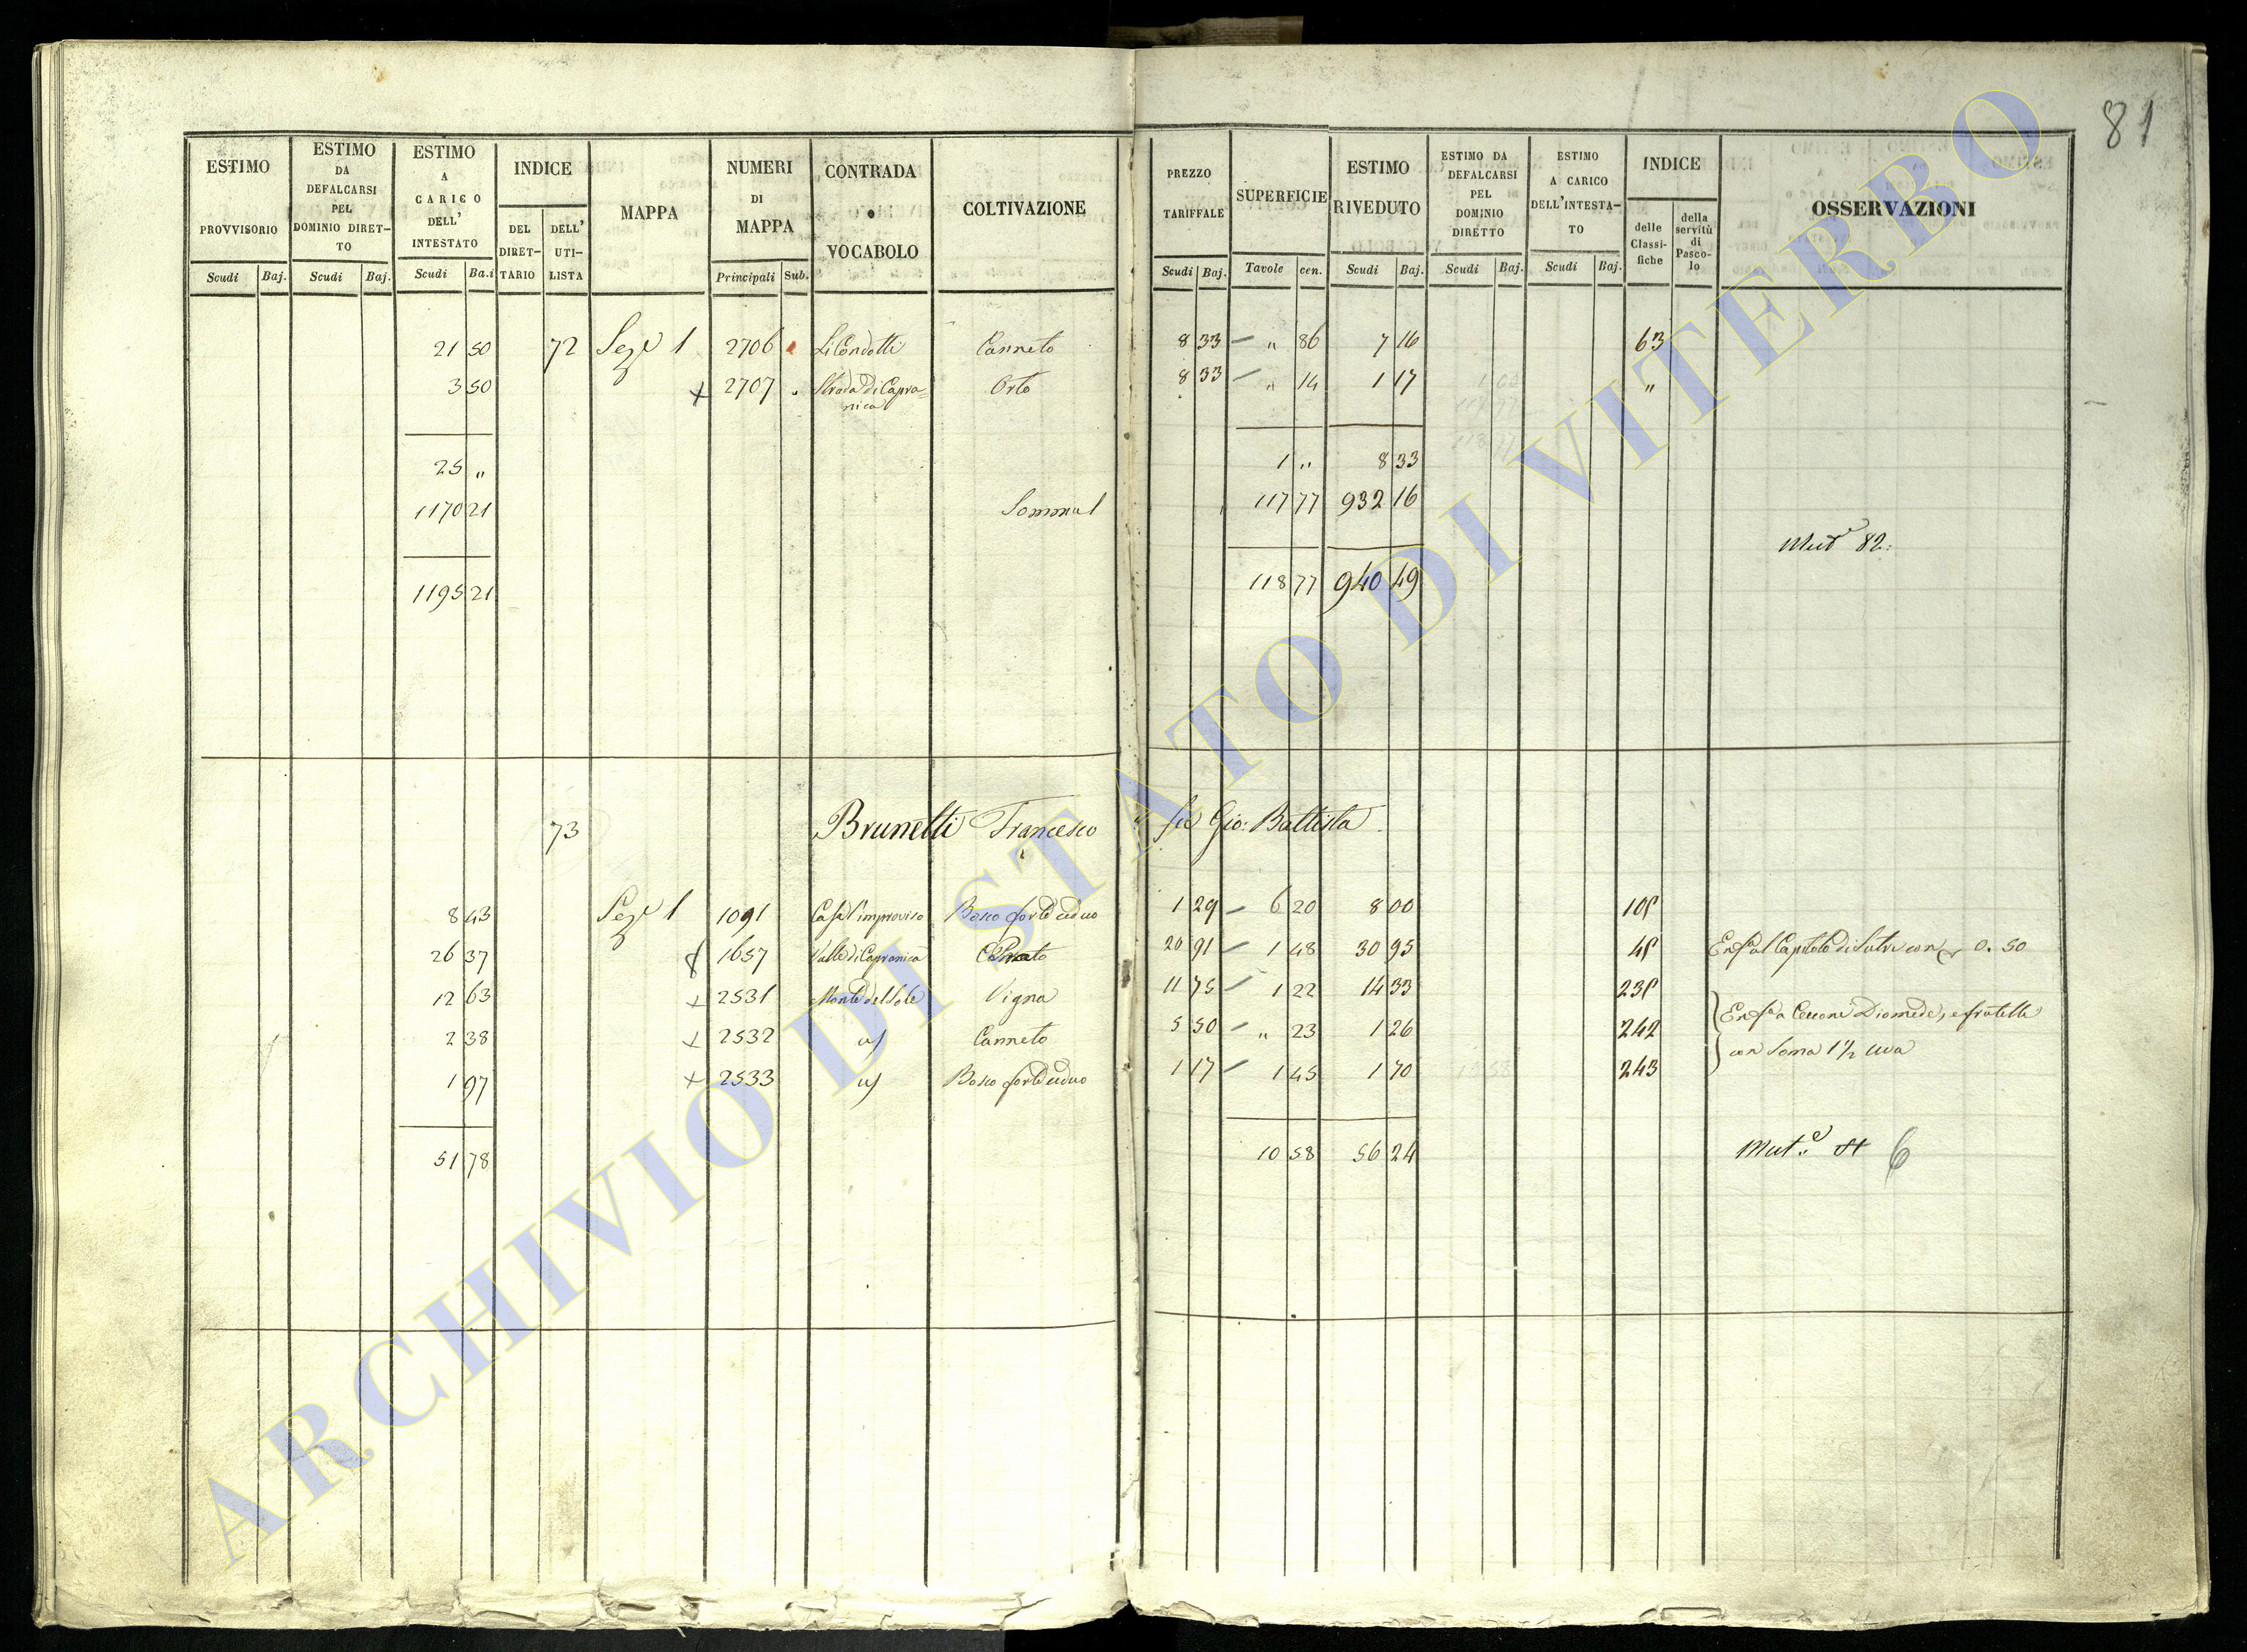 81
ESTIMO PROVVISORIO Scudi Baj.
ESTIMO DA DEFALCARSI PEL DOMINIO DIRET-TO Scudi Baj.
ESTIMO A CARICO DELL' INTESTATO Scudi Ba.i
INDICE DEL DIRET-TARIO DELL' UTI-LISTA
MAPPA
NUMERI DI MAPPA Principali Sub.
CONTRADA o VOCABOLO
COLTIVAZIONE
PREZZO TARIFFALE Scudi Baj.
SUPERFICIE Tavole cen.
ESTIMO RIVEDUTO Scudi Baj.
ESTIMO DA DEFALCARSI PEL DOMINIO DIRETTO Scudi Baj.
ESTIMO A CARICO DELL'INTESTA-TO Scudi Baj.
INDICE delle Classi-fiche della servitù di Pasco-lo
OSSERVAZIONI
21 50 72 Sez.e 1 2706 Li Condotti Canneto 8 33 — „ 86 7 16 63
3 50 + 2707 Strada di Capra=
nica Orto 8 33 — „ 14 1 17 „
25 „ 1 „ 8 33
1170 21 Somma 117 77 932 16
Mut.e 82:
1195 21 118 77 940 49
73 Brunetti Francesco fu Gio: Battista
8 43 Sez.e 1 1091 Casal'improviso Bosco forte ceduo 1 29 — 6 20 8 00
26 37 1657 Valle di Capranica 20 91 — 1 48 30 95 Enf.a al Capitolo di Sutri con 0. 50
12 63 + 2531 Monte del Sole Vigna 11 75 — 1 22 14 33
Enf.a a Ceccone Diomede, e fratelli
2 38 + 2532 Canneto 5 50 — „ 23 1 26 242
con Soma 1 1/2 uva
1 97 + 2533 Bosco forte ceduo 1 17 — 1 45 1 70 243
51 78 10 58 56 24 Mut.e 6
ARCHIVIO DI STATO DI VITERBO